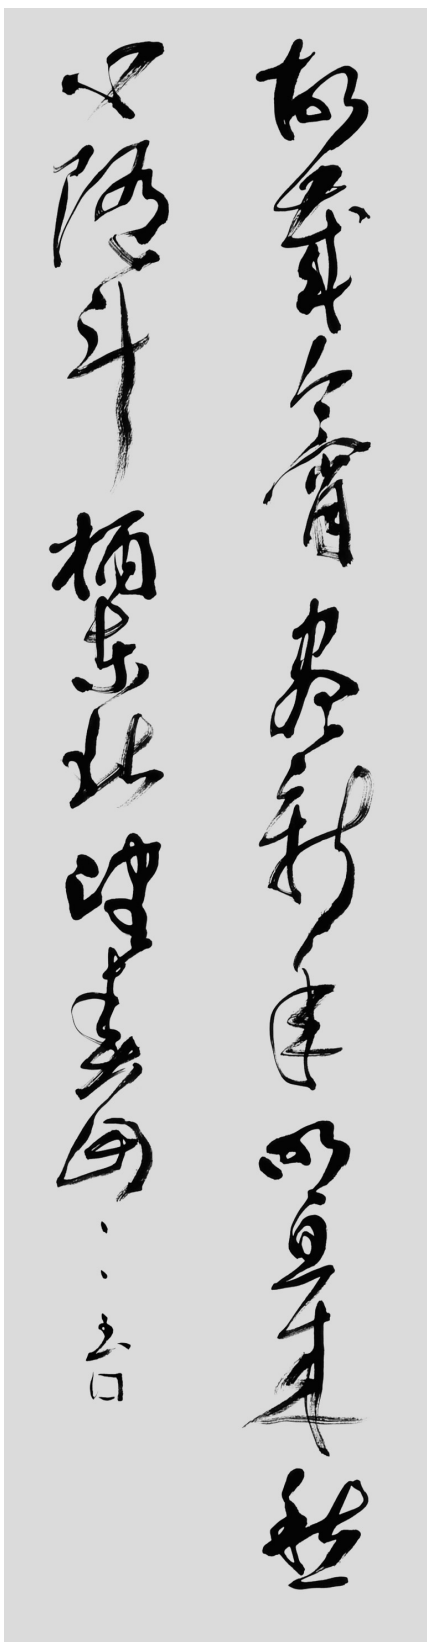 故歲今宵盡新年明旦來愁
心隨斗柄東北望春回